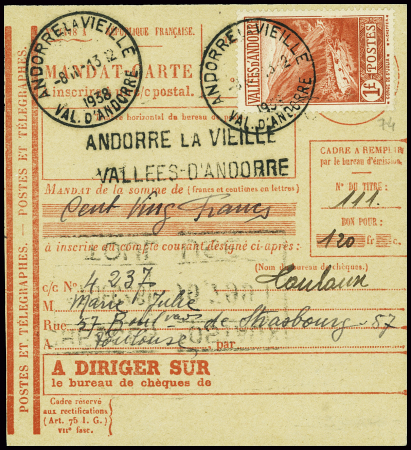 RÉPUBLIQUE FRANÇAISE.
MANDAT-CARTE
à inscrire au c/c postal.
ANDORRE LA VIEILLE
1938
VAL. D'ANDORRE
ANDORRE LA VIEILLE
1938
VAL. D'ANDORRE
VALLÉES D'ANDORRE
1F POSTES
74
horizontal du bureau
ANDORRE LA VIEILLE
VALLEES-D'ANDORRE
CADRE A REMPLIR
par le bureau d'émission
MANDAT de la somme de (francs et centimes en lettres)
N° DU TITRE :
111
Cent Vingt Francs
BON POUR :
120 fr c.
à inscrire au compte courant désigné ci-après :
(Nom du bureau de chèques.)
c/c N° 4.237 Toulouse
M Marie Julie
Rue 57 Boulevard de Strasbourg - 57
A Toulouse par
A DIRIGER SUR
le bureau de chèques de
Cadre réservé
aux rectifications
(Art. 75 I. G.)
VIIe fasc.
POSTES ET TÉLÉGRAPHES. — POSTES ET TÉLÉGRAPHES.